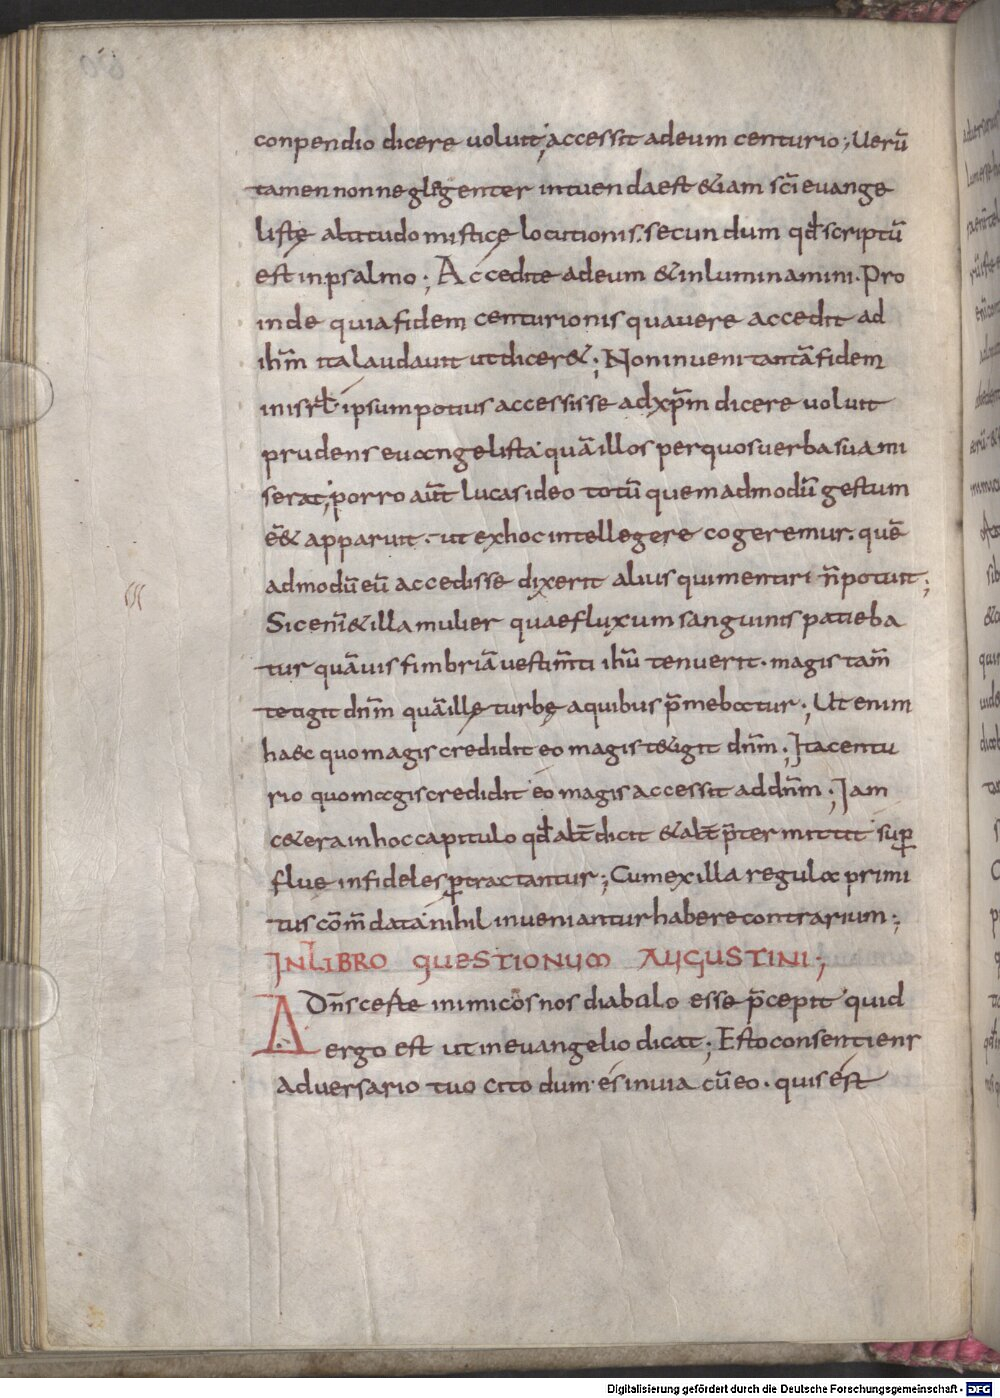 conpendio dicere uoluit; accessit ad eum centurio; Uerū
tamen non neglegenter intuenda est &iam sc̄i euange
listę altitudo misticę locutionis. secundum qđ scriptū
est in psalmo; Accedite ad eum & inluminamini. Pro
inde quia fidem centurionis qua uere accedit ad
ih̄m ita laudauit ut dicer&; Non inueni tantā fidem
in isrł ipsum potius accessisse ad xp̄m dicere uoluit
prudens euangelista quā illos per quos uerba sua mi
serat; porro aūt lucas ideo totū quemadmodū gestum
ē & apparuit. ut ex hoc intellegere cogeremur. quē
admodū eū accedisse dixerit alius qui mentiri n̄ potuit;
Sic eni̅ & illa mulier quae fluxum sanguinis patieba
tur quāuis fimbriā uestim̄ti ih̄u tenuerit. magis tam̄
tetigit dn̄m quā illę turbę a quibus p̄mebatur; Ut enim
haec quo magis credidit eo magis t&igit dn̄m; Ita centu
rio quo magis credidit eo magis accessit ad dn̄m; Iam
c&era in hoc capitulo qđ abt̄ dicit & abt̄ p̄termittit sup̱
fluę in fideles p̱tractantur; Cum ex illa regula primi
tus com̄data nihil inueniantur habere contrarium;
IN LIBRO QUESTIONUM AUGUSTINI;
A Dn̄s cește inimicos nos diabolo esse p̄cepit quid
ergo est ut in euangelio dicat; Esto consentiens
aduersario tuo cito dum es in uia cū eo. quis est